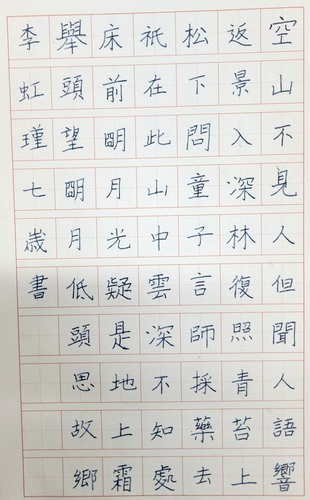 空山不見人但聞人語響
返景入深林復照青苔上
松下問童子言師採藥去
祇在此山中雲深不知處
床前明月光疑是地上霜
舉頭望明月低頭思故鄉
李虹瑾七歲書